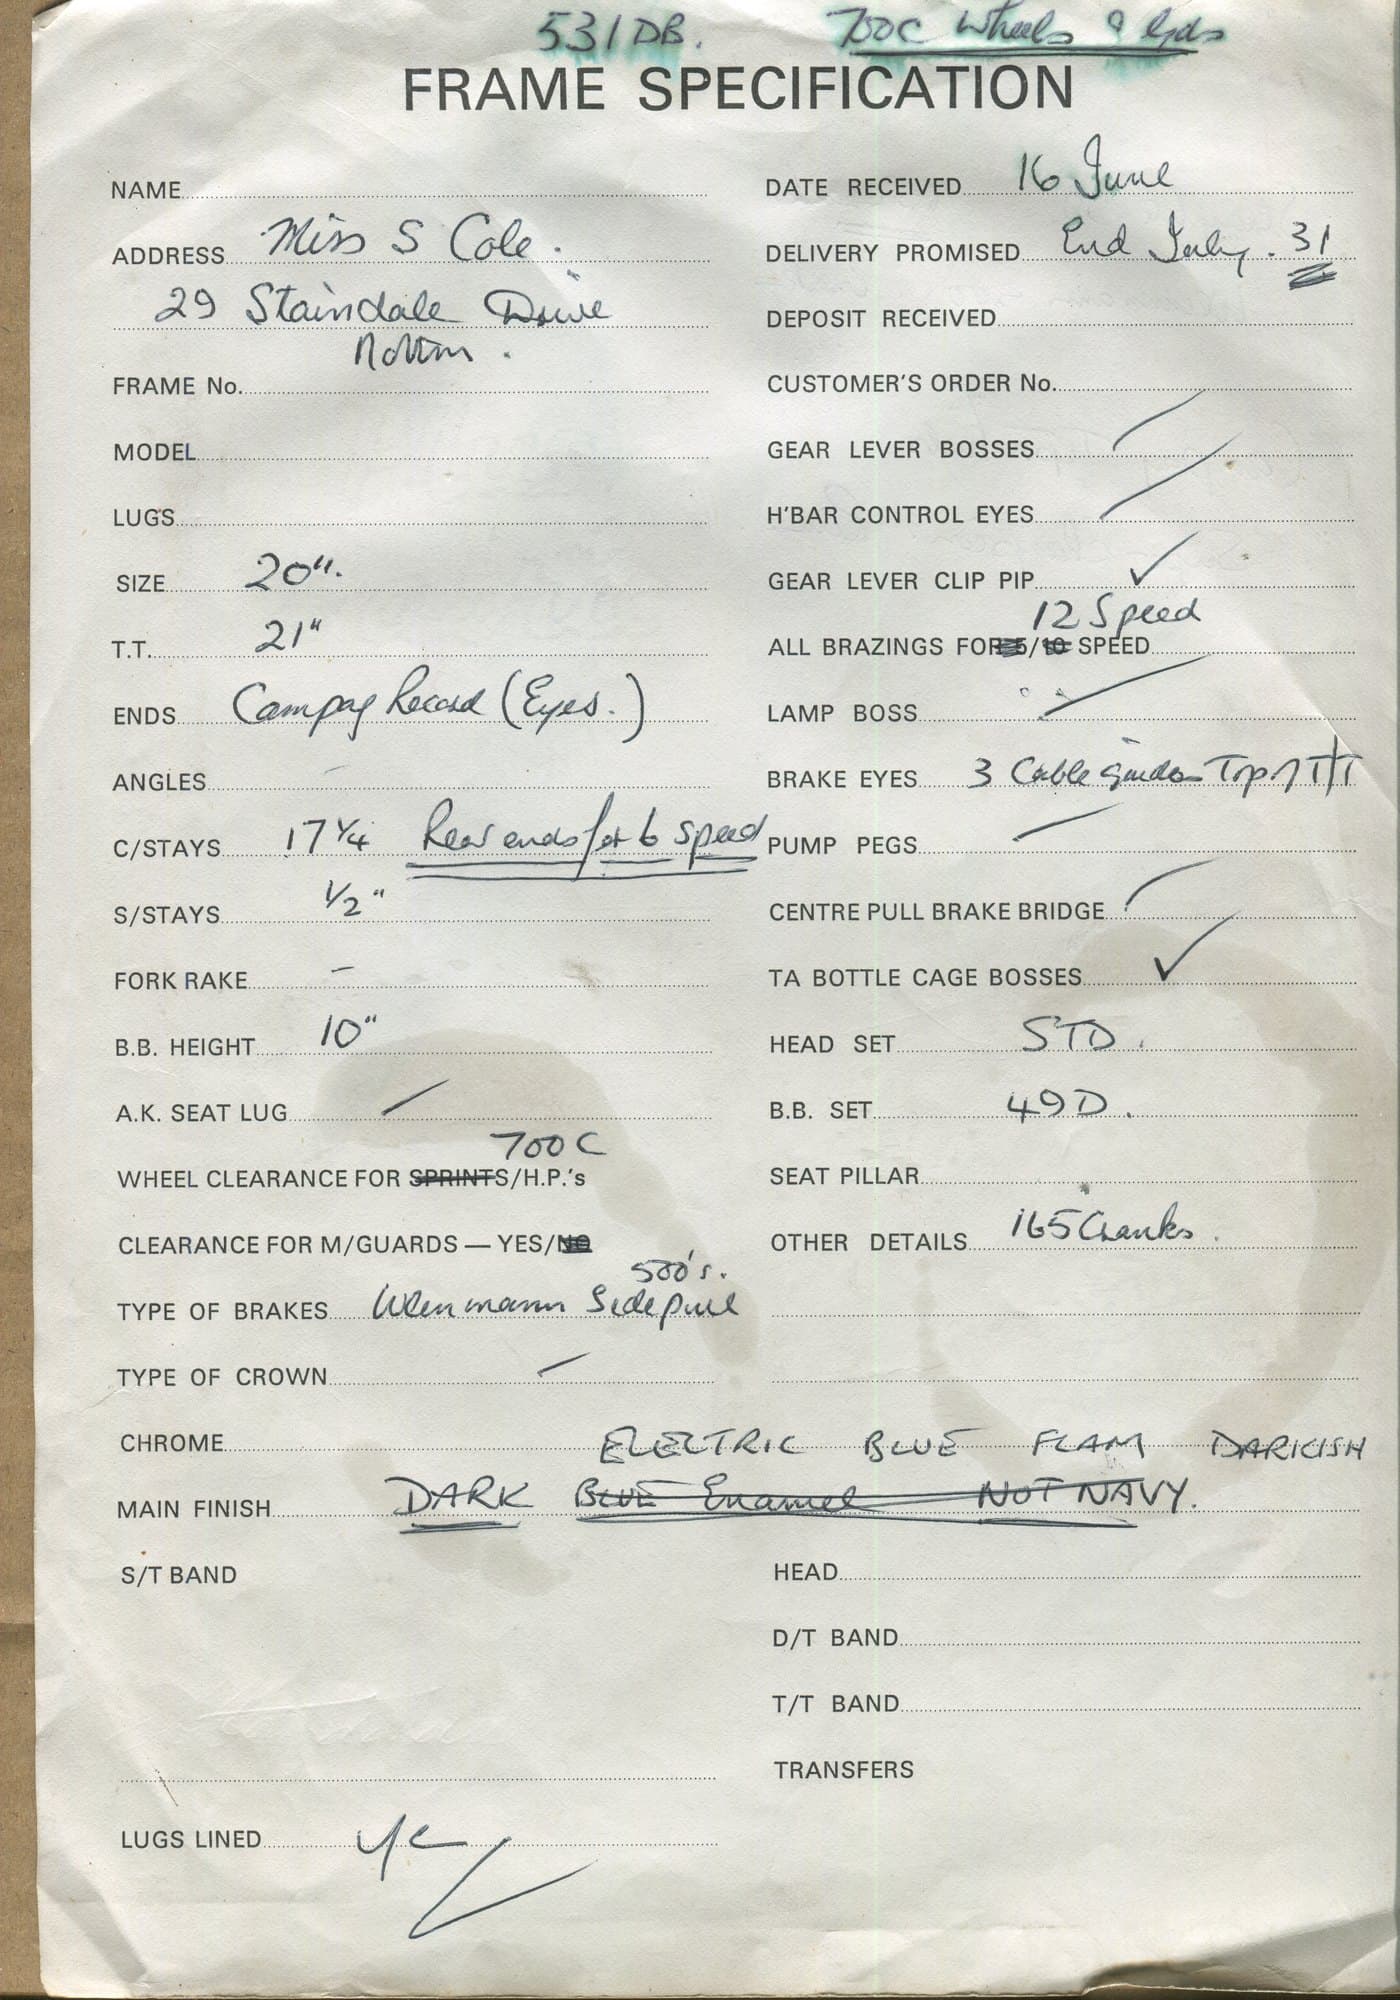 531 DB. 700C Wheels & Gds
FRAME SPECIFICATION
NAME
ADDRESS Miss S Cole.
29 Staindale Drive
Nottm.
FRAME No.
MODEL
LUGS
SIZE 20".
T.T. 21"
ENDS Campag Record (Eyes.)
ANGLES –
C/STAYS 17 1/4 Rear ends for 6 speed
S/STAYS 1/2"
FORK RAKE –
B.B. HEIGHT 10"
A.K. SEAT LUG /
700C
WHEEL CLEARANCE FOR SPRINTS/H.P.'s
CLEARANCE FOR M/GUARDS — YES/NO
500's.
TYPE OF BRAKES Weinmann Sidepull
TYPE OF CROWN /
DATE RECEIVED 16 June
DELIVERY PROMISED End July. 31
DEPOSIT RECEIVED
CUSTOMER'S ORDER No.
GEAR LEVER BOSSES /
H'BAR CONTROL EYES /
GEAR LEVER CLIP PIP ✓
12 Speed
ALL BRAZINGS FOR 5/10 SPEED
LAMP BOSS /
BRAKE EYES 3 Cable guides Top of T/T
PUMP PEGS /
CENTRE PULL BRAKE BRIDGE /
TA BOTTLE CAGE BOSSES ✓
HEAD SET STD.
B.B. SET 49D.
SEAT PILLAR
OTHER DETAILS 165 Cranks.
CHROME ELECTRIC BLUE FLAM DARKISH
MAIN FINISH DARK BLUE Enamel NOT NAVY.
S/T BAND
HEAD
D/T BAND
T/T BAND
TRANSFERS
LUGS LINED